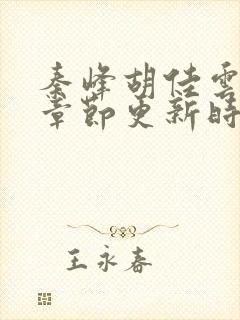 秦峰胡佳雲
章節更新時
王永春